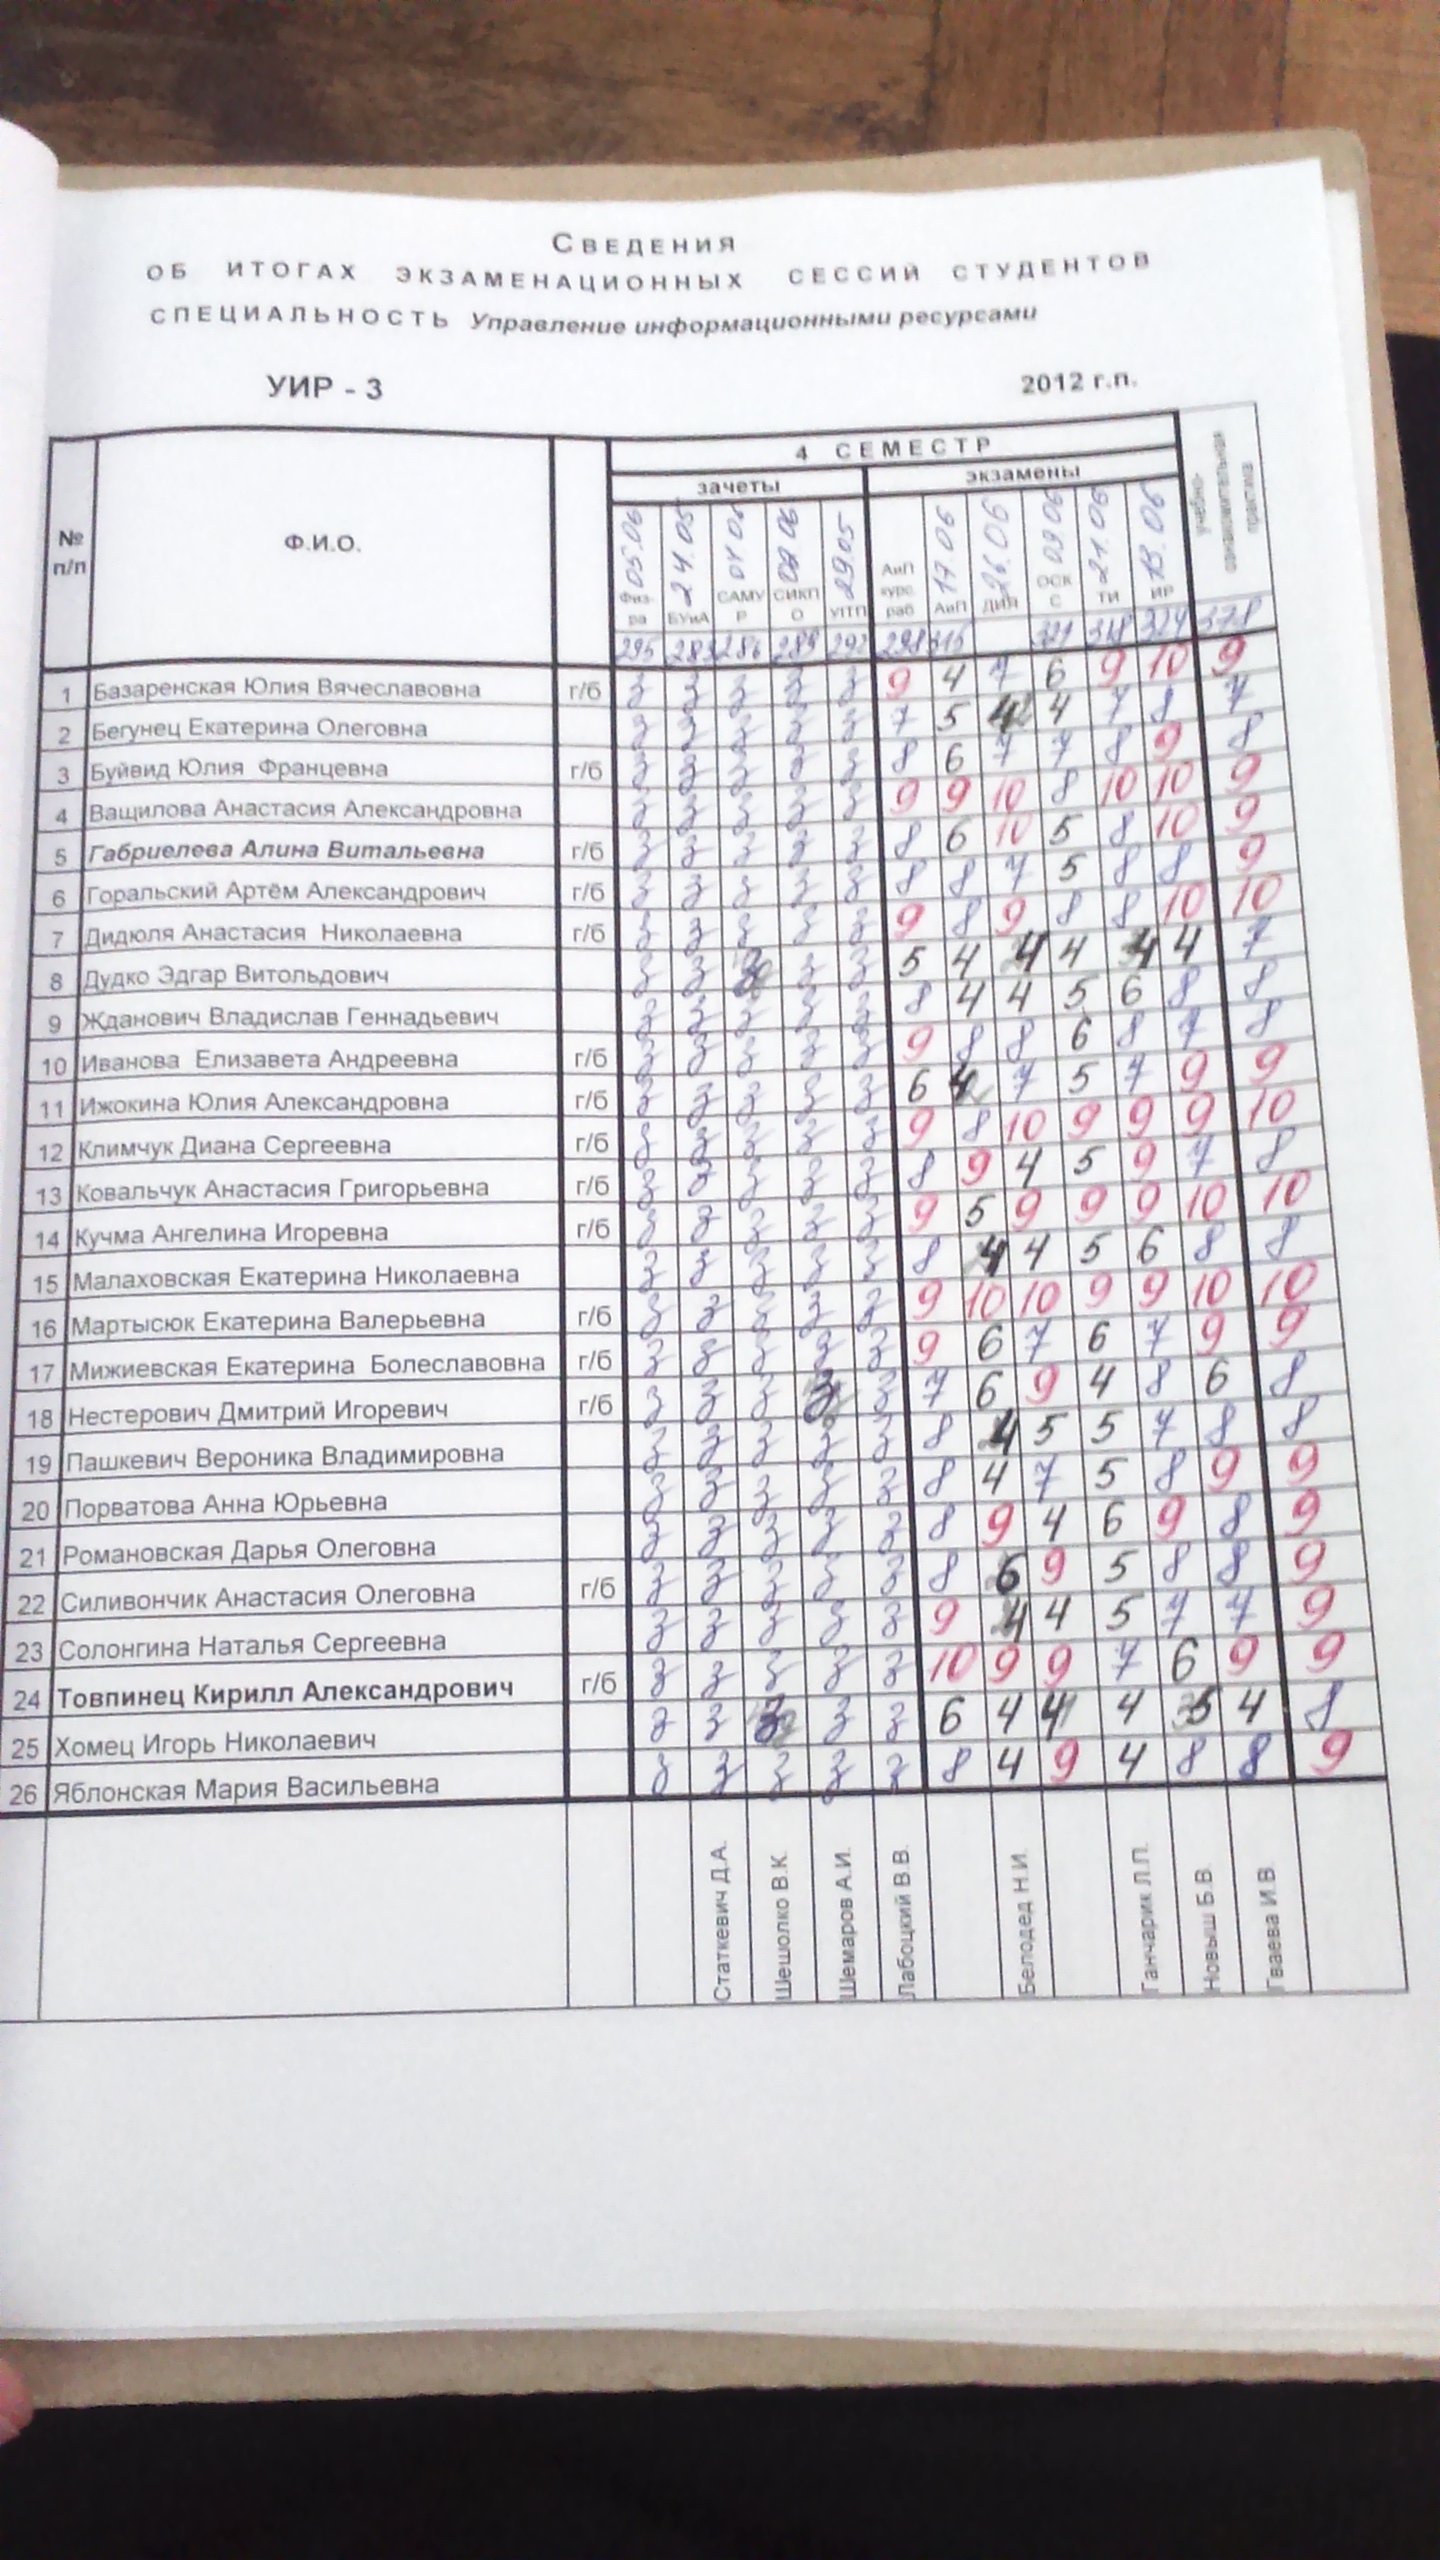 Сведения
ОБ ИТОГАХ ЭКЗАМЕНАЦИОННЫХ СЕССИЙ СТУДЕНТОВ
СПЕЦИАЛЬНОСТЬ Управление информационными ресурсами
УИР - 3 2012 г.п.
№ п/п Ф.И.О. 4 СЕМЕСТР
зачеты экзамены учебно-ознакомительная практика
05.06 24.05 01.06 09.06 29.05 17.06 26.06 09.06 21.06 13.06
Физ-ра БУиА САМУР СИКПО УПТП АиП курс. раб АиП ДИЯ ОСКС ТИ ИР
295 283 286 289 292 298 315 321 318 324 378
1 Базаренская Юлия Вячеславовна г/б з з з з з 9 4 7 6 9 10 9
2 Бегунец Екатерина Олеговна з з з з з 7 5 4 4 7 8 7
3 Буйвид Юлия Францевна г/б з з з з з 8 6 7 7 8 9 8
4 Ващилова Анастасия Александровна з з з з з 9 9 10 8 10 10 9
5 Габриелева Алина Витальевна г/б з з з з з 8 6 10 5 8 10 9
6 Горальский Артём Александрович г/б з з з з з 8 8 7 5 8 8 9
7 Дидюля Анастасия Николаевна г/б з з з з з 9 8 9 8 8 10 10
8 Дудко Эдгар Витольдович з з з з з 5 4 4 4 4 4 7
9 Жданович Владислав Геннадьевич з з з з з 8 4 4 5 6 8 8
10 Иванова Елизавета Андреевна г/б з з з з з 9 8 8 6 8 7 8
11 Ижокина Юлия Александровна г/б з з з з з 6 4 7 5 7 9 9
12 Климчук Диана Сергеевна г/б з з з з з 9 8 10 9 9 9 10
13 Ковальчук Анастасия Григорьевна г/б з з з з з 8 9 4 5 9 7 8
14 Кучма Ангелина Игоревна г/б з з з з з 9 5 9 9 9 10 10
15 Малаховская Екатерина Николаевна з з з з з 8 4 4 5 6 8 8
16 Мартысюк Екатерина Валерьевна г/б з з з з з 9 10 10 9 9 10 10
17 Мижиевская Екатерина Болеславовна г/б з з з з з 9 6 7 6 7 9 9
18 Нестерович Дмитрий Игоревич г/б з з з з з 7 6 9 4 8 6 8
19 Пашкевич Вероника Владимировна з з з з з 8 4 5 5 7 8 8
20 Порватова Анна Юрьевна з з з з з 8 4 7 5 8 9 9
21 Романовская Дарья Олеговна з з з з з 8 9 4 6 9 8 9
22 Силивончик Анастасия Олеговна г/б з з з з з 8 6 9 5 8 8 9
23 Солонгина Наталья Сергеевна з з з з з 9 4 4 5 7 7 9
24 Товпинец Кирилл Александрович г/б з з з з з 10 9 9 7 6 9 9
25 Хомец Игорь Николаевич з з з з з 6 4 4 4 5 4 8
26 Яблонская Мария Васильевна з з з з з 8 4 9 4 8 8 9
Статкевич Д.А. Шешолко В.К. Шемаров А.И. Лабоцкий В.В. Белодед Н.И. Ганчарик Л.П. Новыш Б.В. Гваева И.В.